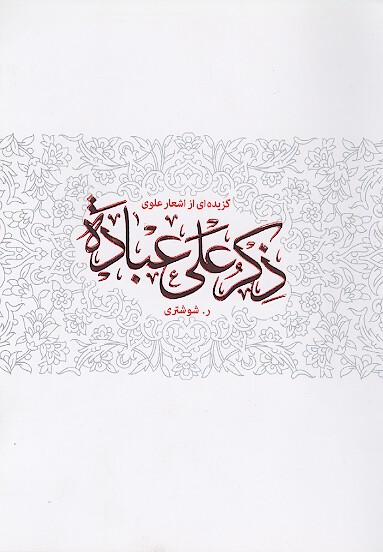 گزیده‌ای از اشعار علوی
ذِكرُ عَلی عِبادَة
ر. شوشتری